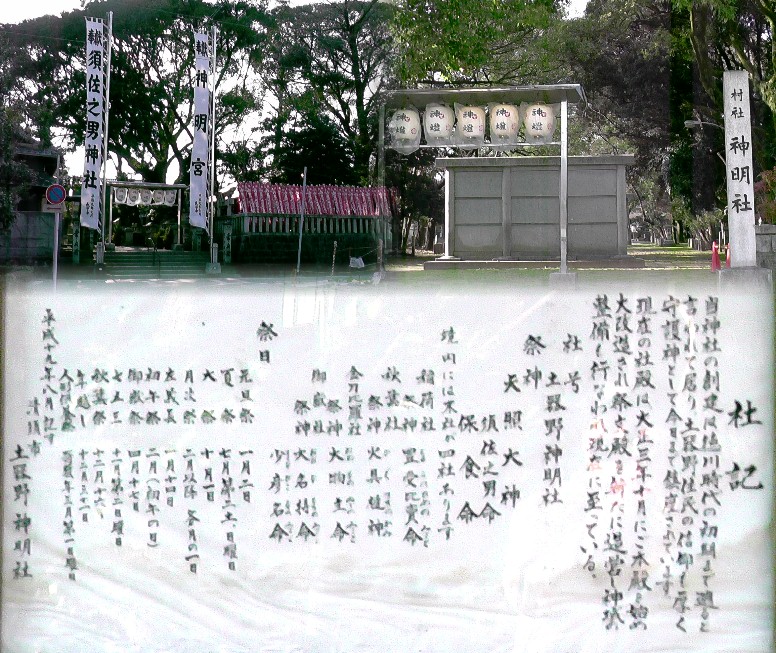 須佐之男神社
神明宮
神燈
神燈
神燈
神燈
神燈
村社 神明社
社記
当神社の創建は徳川時代の初期まで遡ると
言われて居り土器野住民の信仰も厚く
守護神として今日まで鎮座されています
現在の社殿は大正三年十月にご本殿を始め
大改造され祭文殿も新たに造営し神域
整備も行なわれ現在に至っている。
社号
土器野神明社
祭神
天照大神
須佐之男命
保食命
境内には末社が四社あります
稲荷社
祭神
秋葉社
祭神 火具追神
金刀比羅社
祭神 大物主命
御嶽社
祭神 大名持命
少彦名命
祭日
元旦祭 一月一日
夏祭
大祭
月次祭 各月の一日
左義長 一月十四日
初午祭 二月(初午の日)
御嶽祭 四月十七日
七五三 十一月第二日曜日
秋葉祭 十二月十六日
年越し 十二月三十一日
平成十九年八月記す
清須市
土器野神明社